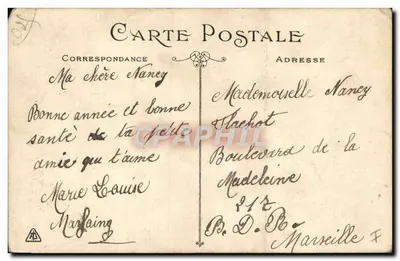 CARTE POSTALE
CORRESPONDANCE
ADRESSE
Ma chère Nancy
Bonne année et bonne
santé de ta petite
amie qui t'aime
Marie Louise
Mademoiselle Nancy
Flachot
Boulevard de la
Madeleine
217
B. D. R.
Marseille
CPAPHIL